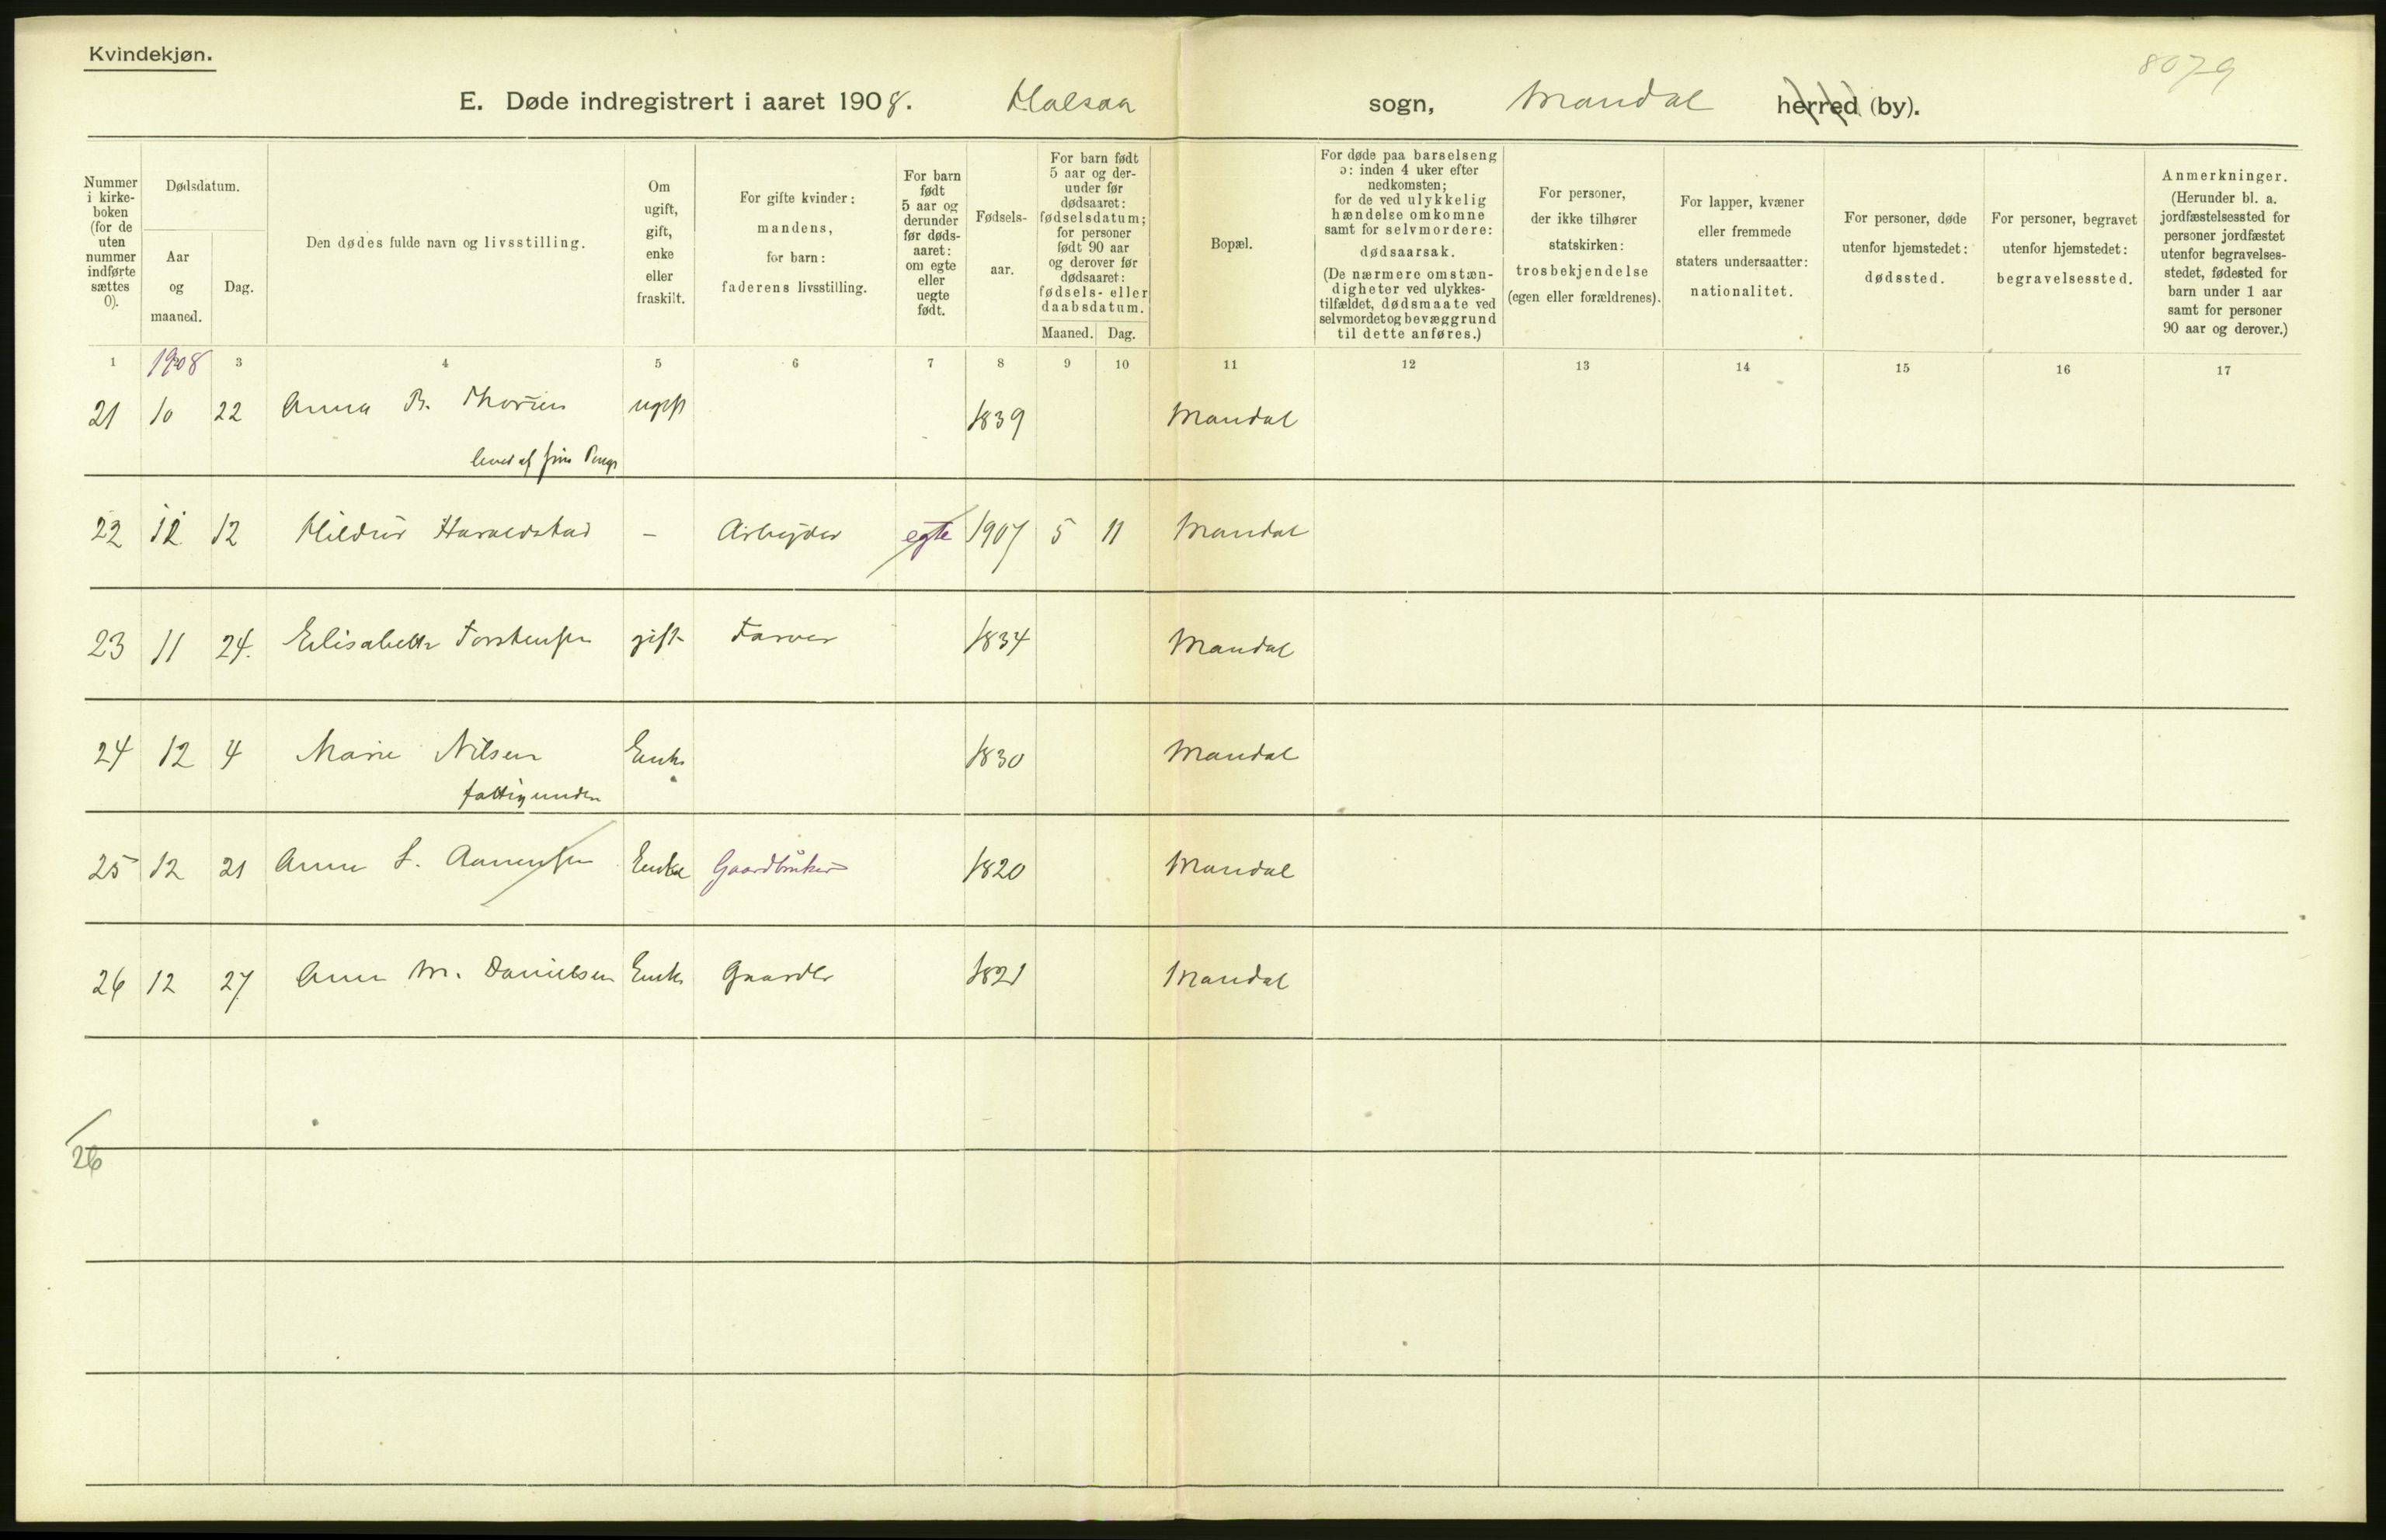 Kvindekjøn.
8079
E. Døde indregistrert i aaret 1908. Halsaa sogn, Mandal herred (by).
Nummer i kirke-boken (for de uten nummer indførte sættes 0).
Dødsdatum.
Aar og maaned.
Dag.
Den dødes fulde navn og livsstilling.
Om ugift, gift, enke eller fraskilt.
For gifte kvinder: mandens, for barn: faderens livsstilling.
For barn født 5 aar og derunder før døds-aaret: om egte eller uegte født.
Fødsels-aar.
For barn født 5 aar og der-under før dødsaaret: fødselsdatum; for personer født 90 aar og derover før dødsaaret: fødsels- eller daabsdatum.
Maaned. Dag.
Bopæl.
For døde paa barselseng ɔ: inden 4 uker efter nedkomsten; for de ved ulykkelig hændelse omkomne samt for selvmordere: dødsaarsak. (De nærmere omstæn-digheter ved ulykkes-tilfældet, dødsmaate ved selvmordet og bevæggrund til dette anføres.)
For personer, der ikke tilhører statskirken: trosbekjendelse (egen eller forældrenes).
For lapper, kvæner eller fremmede staters undersaatter: nationalitet.
For personer, døde utenfor hjemstedet: dødssted.
For personer, begravet utenfor hjemstedet: begravelsessted.
Anmerkninger. (Herunder bl. a. jordfæstelsessted for personer jordfæstet utenfor begravelses-stedet, fødested for barn under 1 aar samt for personer 90 aar og derover.)
1 1908 3 4 5 6 7 8 9 10 11 12 13 14 15 16 17
21 10 22 Anna B. ugift 1839 Mandal
levet af sine Penge
22 12 12 Hildur Haraldstad - Arbeyder egte 1907 5 11 Mandal
23 11 24. Elisabeth Torstensen gift Farver 1834 Mandal
24 12 4 Marie Nilsen Enke 1830 Mandal
fattigunder
25 12 21 Anne S. Aanensen Enke Gaardbruker 1820 Mandal
26 12 27 Ane M. Danielsen Enke Gaardbr 1821 Mandal
26